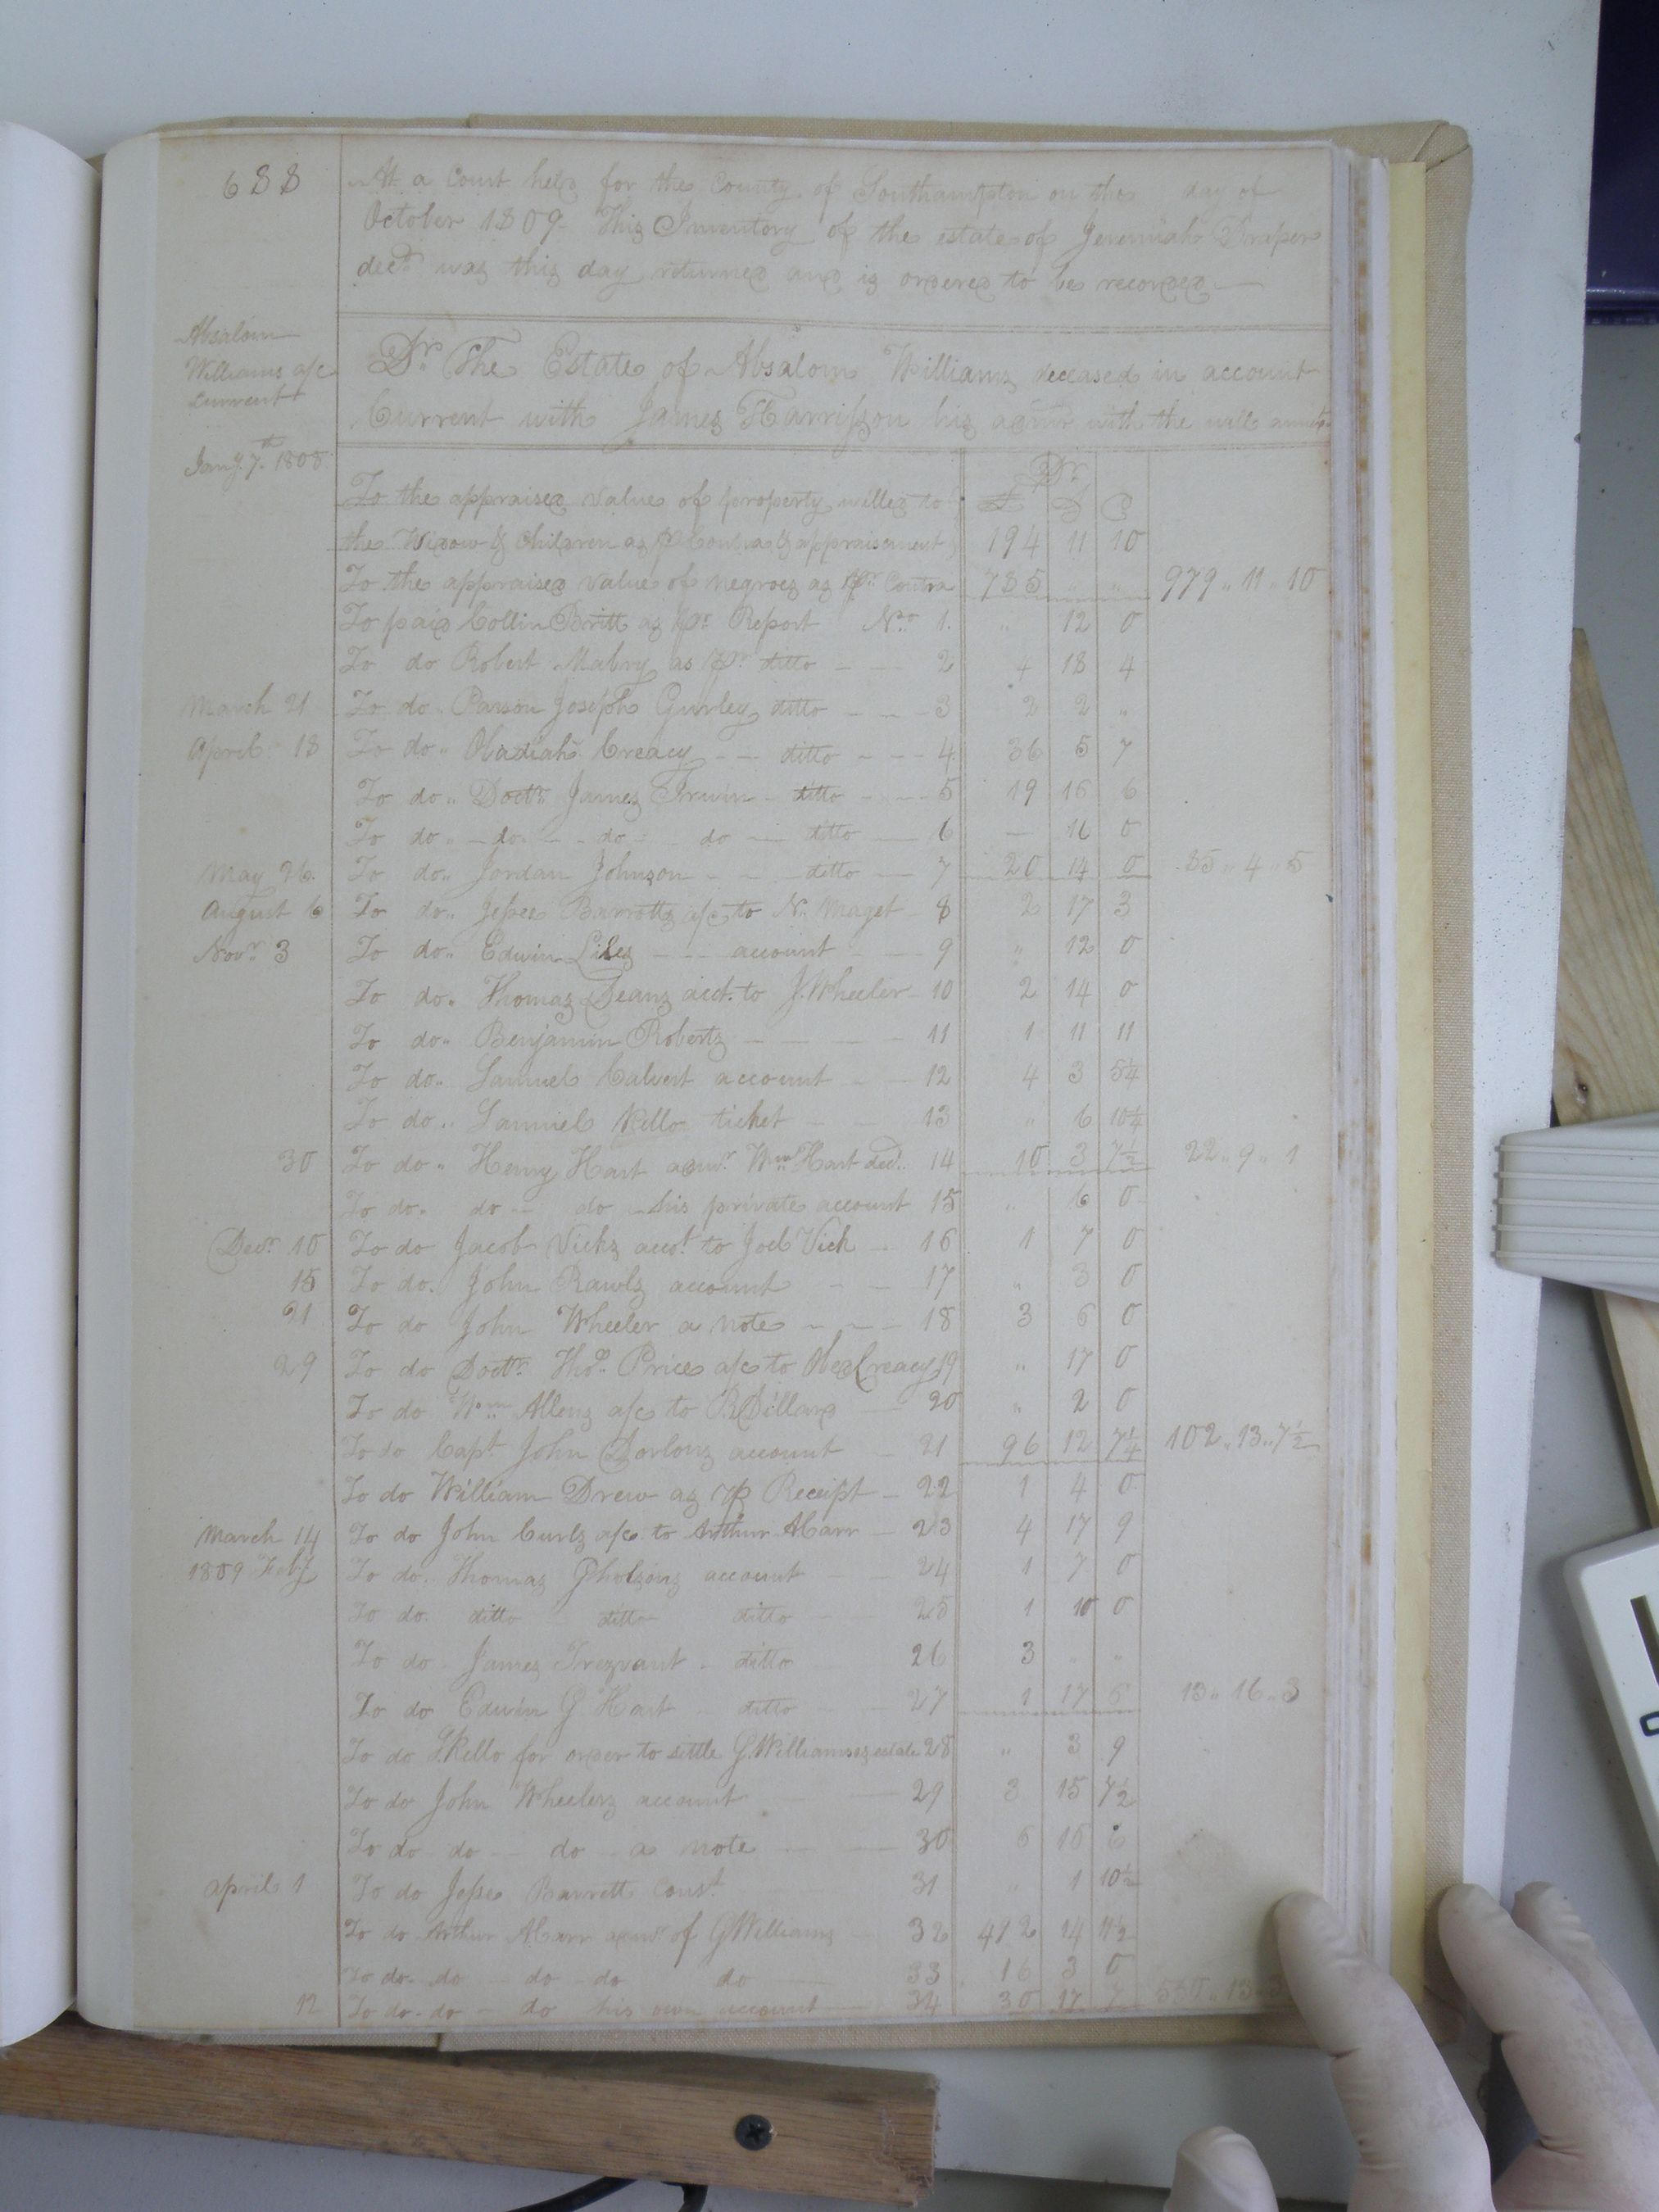 688
At a Court held for the County of Southampton on the day of
October 1809. This Inventory of the estate of Jeremiah Draper
decd. was this day returned and is ordered to be recorded —
Absalom
Williams a/c
current
Dr. The Estate of Absalom Williams deceased in account
Current with James Harrisson his admr with the will annxd.
Jany. 7th 1808
Dr.
To the appraised value of property willed to £ S
the Widow & Children as Pr Contra & appraisement 194 11 10
To the appraised value of negroes as Pr. Contra 785 " " 979 " 11 " 10
To paid Collin Britt as Pr. Report No. 1. " 12 0
To do Robert Mabry as Pr ditto — — 2 4 18 4
March 21 To do Parson Joseph Gurley ditto — — 3 2 2 "
April 18 To do " Obadiah Creacy — — ditto — — 4 36 5 7
To do " Doctr. James Trewin — ditto — — 5 19 16 6
To do " — do — do — do — ditto — 6 — 16 0
May 26. To do " Jordan Johnson — — ditto — 7 20 14 0 85 " 4 " 5
August 6 To do " Jesse Barrotts a/c to N. Maget 8 2 17 3
Novr. 3 To do " Edwin Liles — — account — — 9 " 12 0
To do " Thomas Deans acct. to J. Wheeler — 10 2 14 0
To do " Benjamin Roberts — — — — 11 1 11 11
To do " Samuel Calvert account — — 12 4 3 5¼
To do " Samuel Kello ticket — — 13 " 6 10¼
30 To do " Henry Hart admr. Wm. Hart decd. 14 10 3 7½ 22 " 9 " 1
To do " do — do — his private account 15 " 6 0
Decr. 10 To do Jacob Vicks acct. to Joel Vick — 16 1 7 0
15 To do. John Rawls account — — 17 " 3 0
21 To do John Wheeler a note — — — 18 3 6 0
29 To do Doctr. Thos. Price a/c to Obed Creacy 19 " 17 0
To do Wm. Allens a/c to R Dillard — 20 " 2 0
To do Capt. John Dorlons account — 21 96 12 7¼ 102 " 13 " 7½
To do William Drew as Pr Receipt — 22 1 4 0
March 14 To do John Curls a/c to Arthur A Carr — 23 4 17 9
1809 Feby To do. Thomas Gholsons account — — 24 1 7 0
To do. ditto ditto ditto — 25 1 10 0
To do. James Trezvant — ditto 26 3 " "
To do Edwin G. Hart ditto — 27 1 17 6 13 " 16 " 3
To do S. Kello for order to settle G. Williamses estate 28 " 3 9
To do John Wheelers account — 29 3 15 7½
To do do — do a note — 30 6 16 6
April 1 To do Jesse Barrett Const. 31 " 1 10½
To do Arthur A Carr admr of G Williams — 32 412 14
To do. do — do — do do — 33 16 3 0
12 To do — do — do his own account — 34 30 17 7